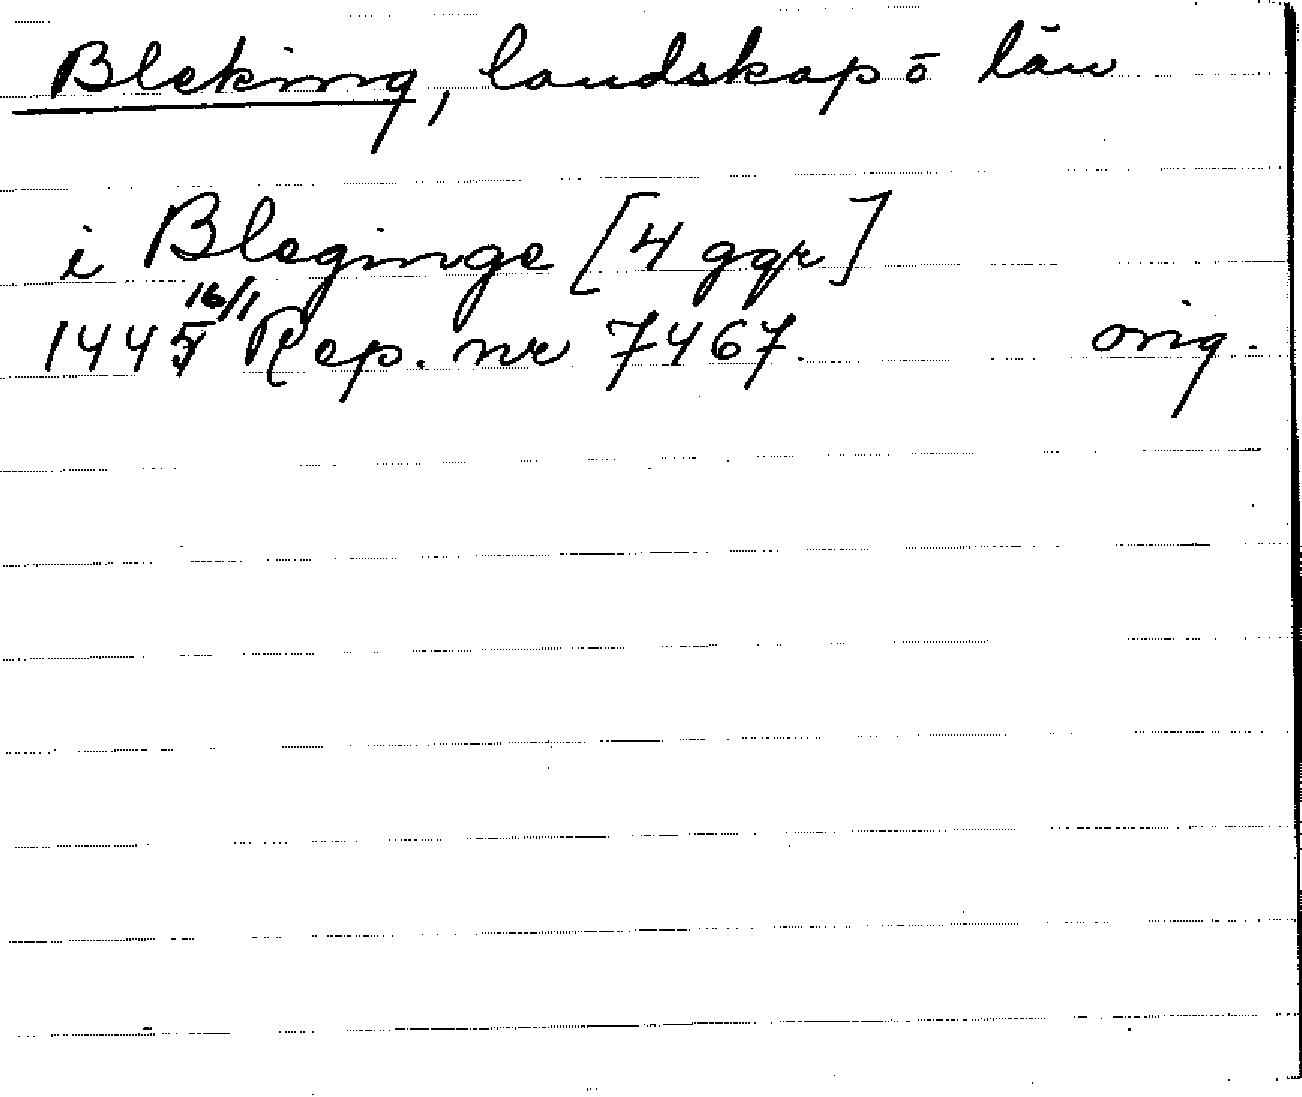 Bleking, landskap o län
i Bleginge [4 ggr]
1445 16/1 Rep. nr 7467. orig.